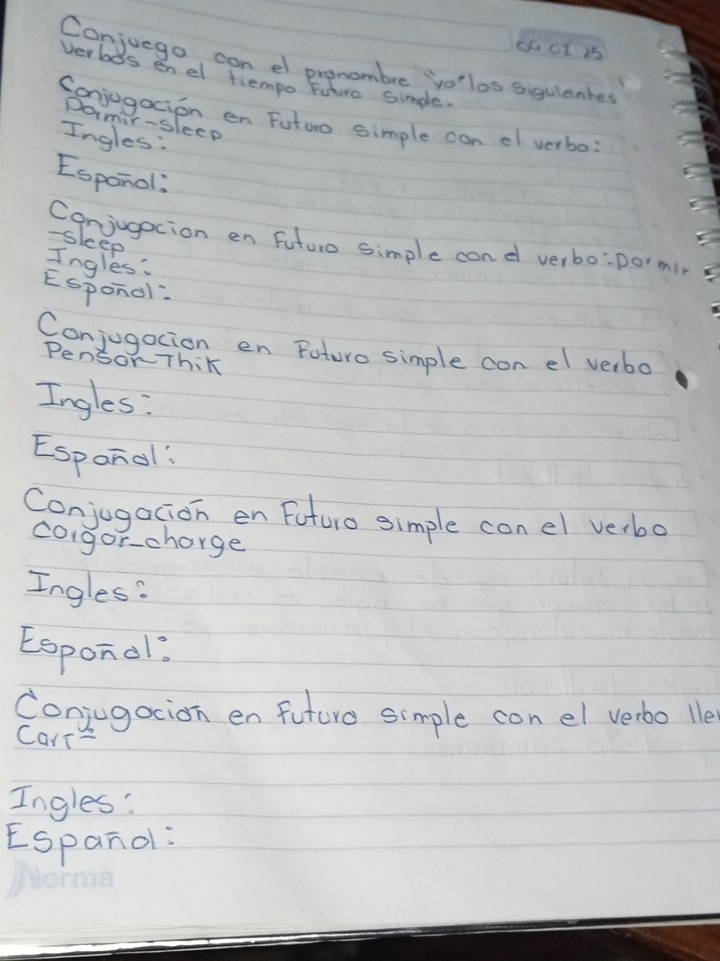 04 02 25
Conjuego con el pronombre "yo" los siguientes
verbos en el tiempo Futuro simple.
Conjugación en Futuro simple con el verbo:
Dormir-sleep
Ingles:
Español:
Conjugacion en Futuro simple con el verbo:Dormir
-sleep
Ingles:
Español:
Conjugacion en Futuro simple con el verbo
Pensar-Thik
Ingles:
Español:
Conjugación en Futuro simple con el verbo
cargar-charge
Ingles:
Español:
Conjugacion en futuro simple con el verbo lle
Carry
Ingles:
Español:
Norma